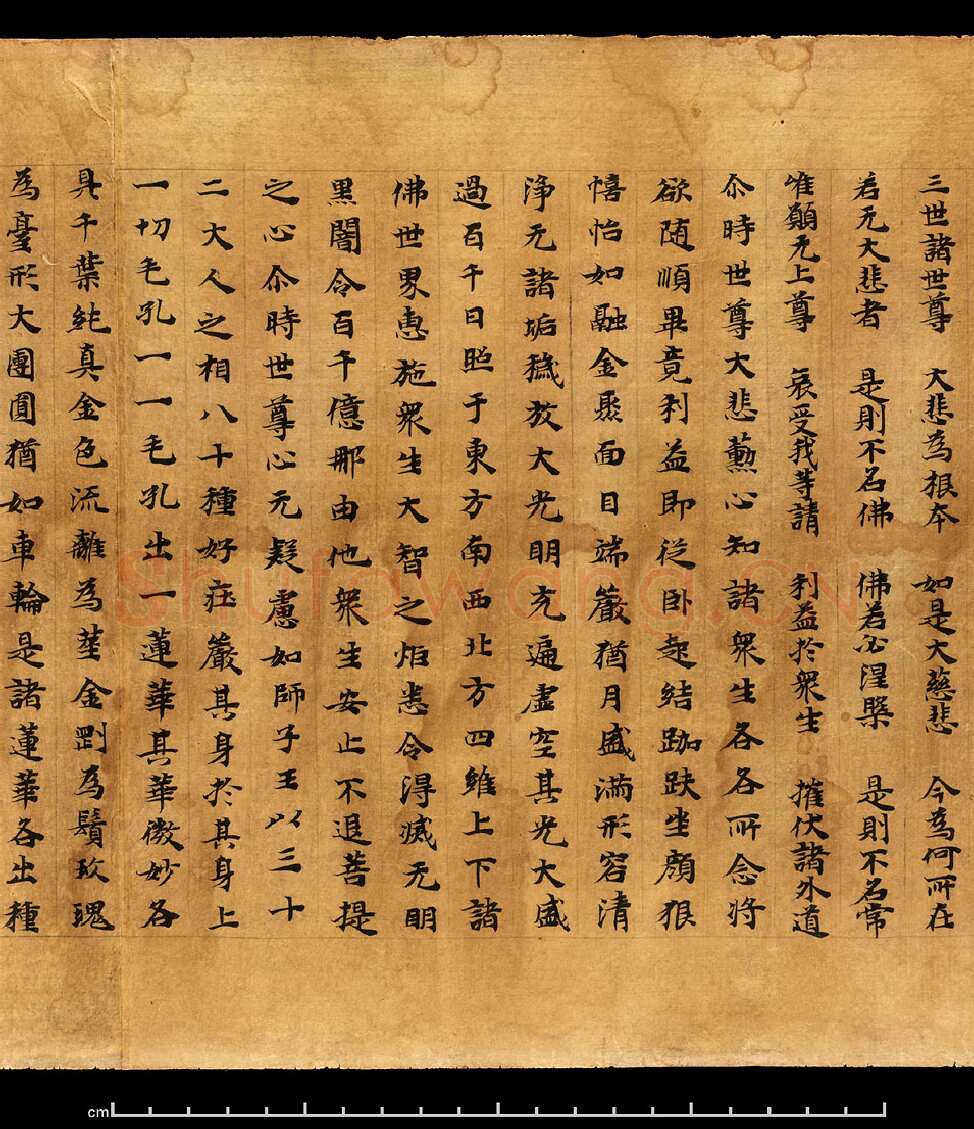 三世諸世尊　大悲為根本　如是大慈悲　今為何所在
若无大悲者　是則不名佛　佛若必涅槃　是則不名常
唯願无上尊　哀受我等請　利益於衆生　摧伏諸外道
尒時世尊大悲勳心知諸衆生各各所念将
欲随順畢竟利益即從卧起結跏趺坐顔狠
憘怡如融金聚面目端嚴猶月盛滿形容清
浄无諸垢穢放大光明充遍虚空其光大盛
過百千日照于東方南西北方四維上下諸
佛世界惠施衆生大智之炬悉令得滅无明
黒闇令百千億那由他衆生安止不退菩提
之心尒時世尊心无疑慮如師子王以三十
二大人之相八十種好莊嚴其身於其身上
一切毛孔一一毛孔出一蓮華其華微妙各
具千葉純真金色流離為莖金剛為鬚玫瑰
為臺形大團圓猶如車輪是諸蓮華各出種
shufawang.cn
cm